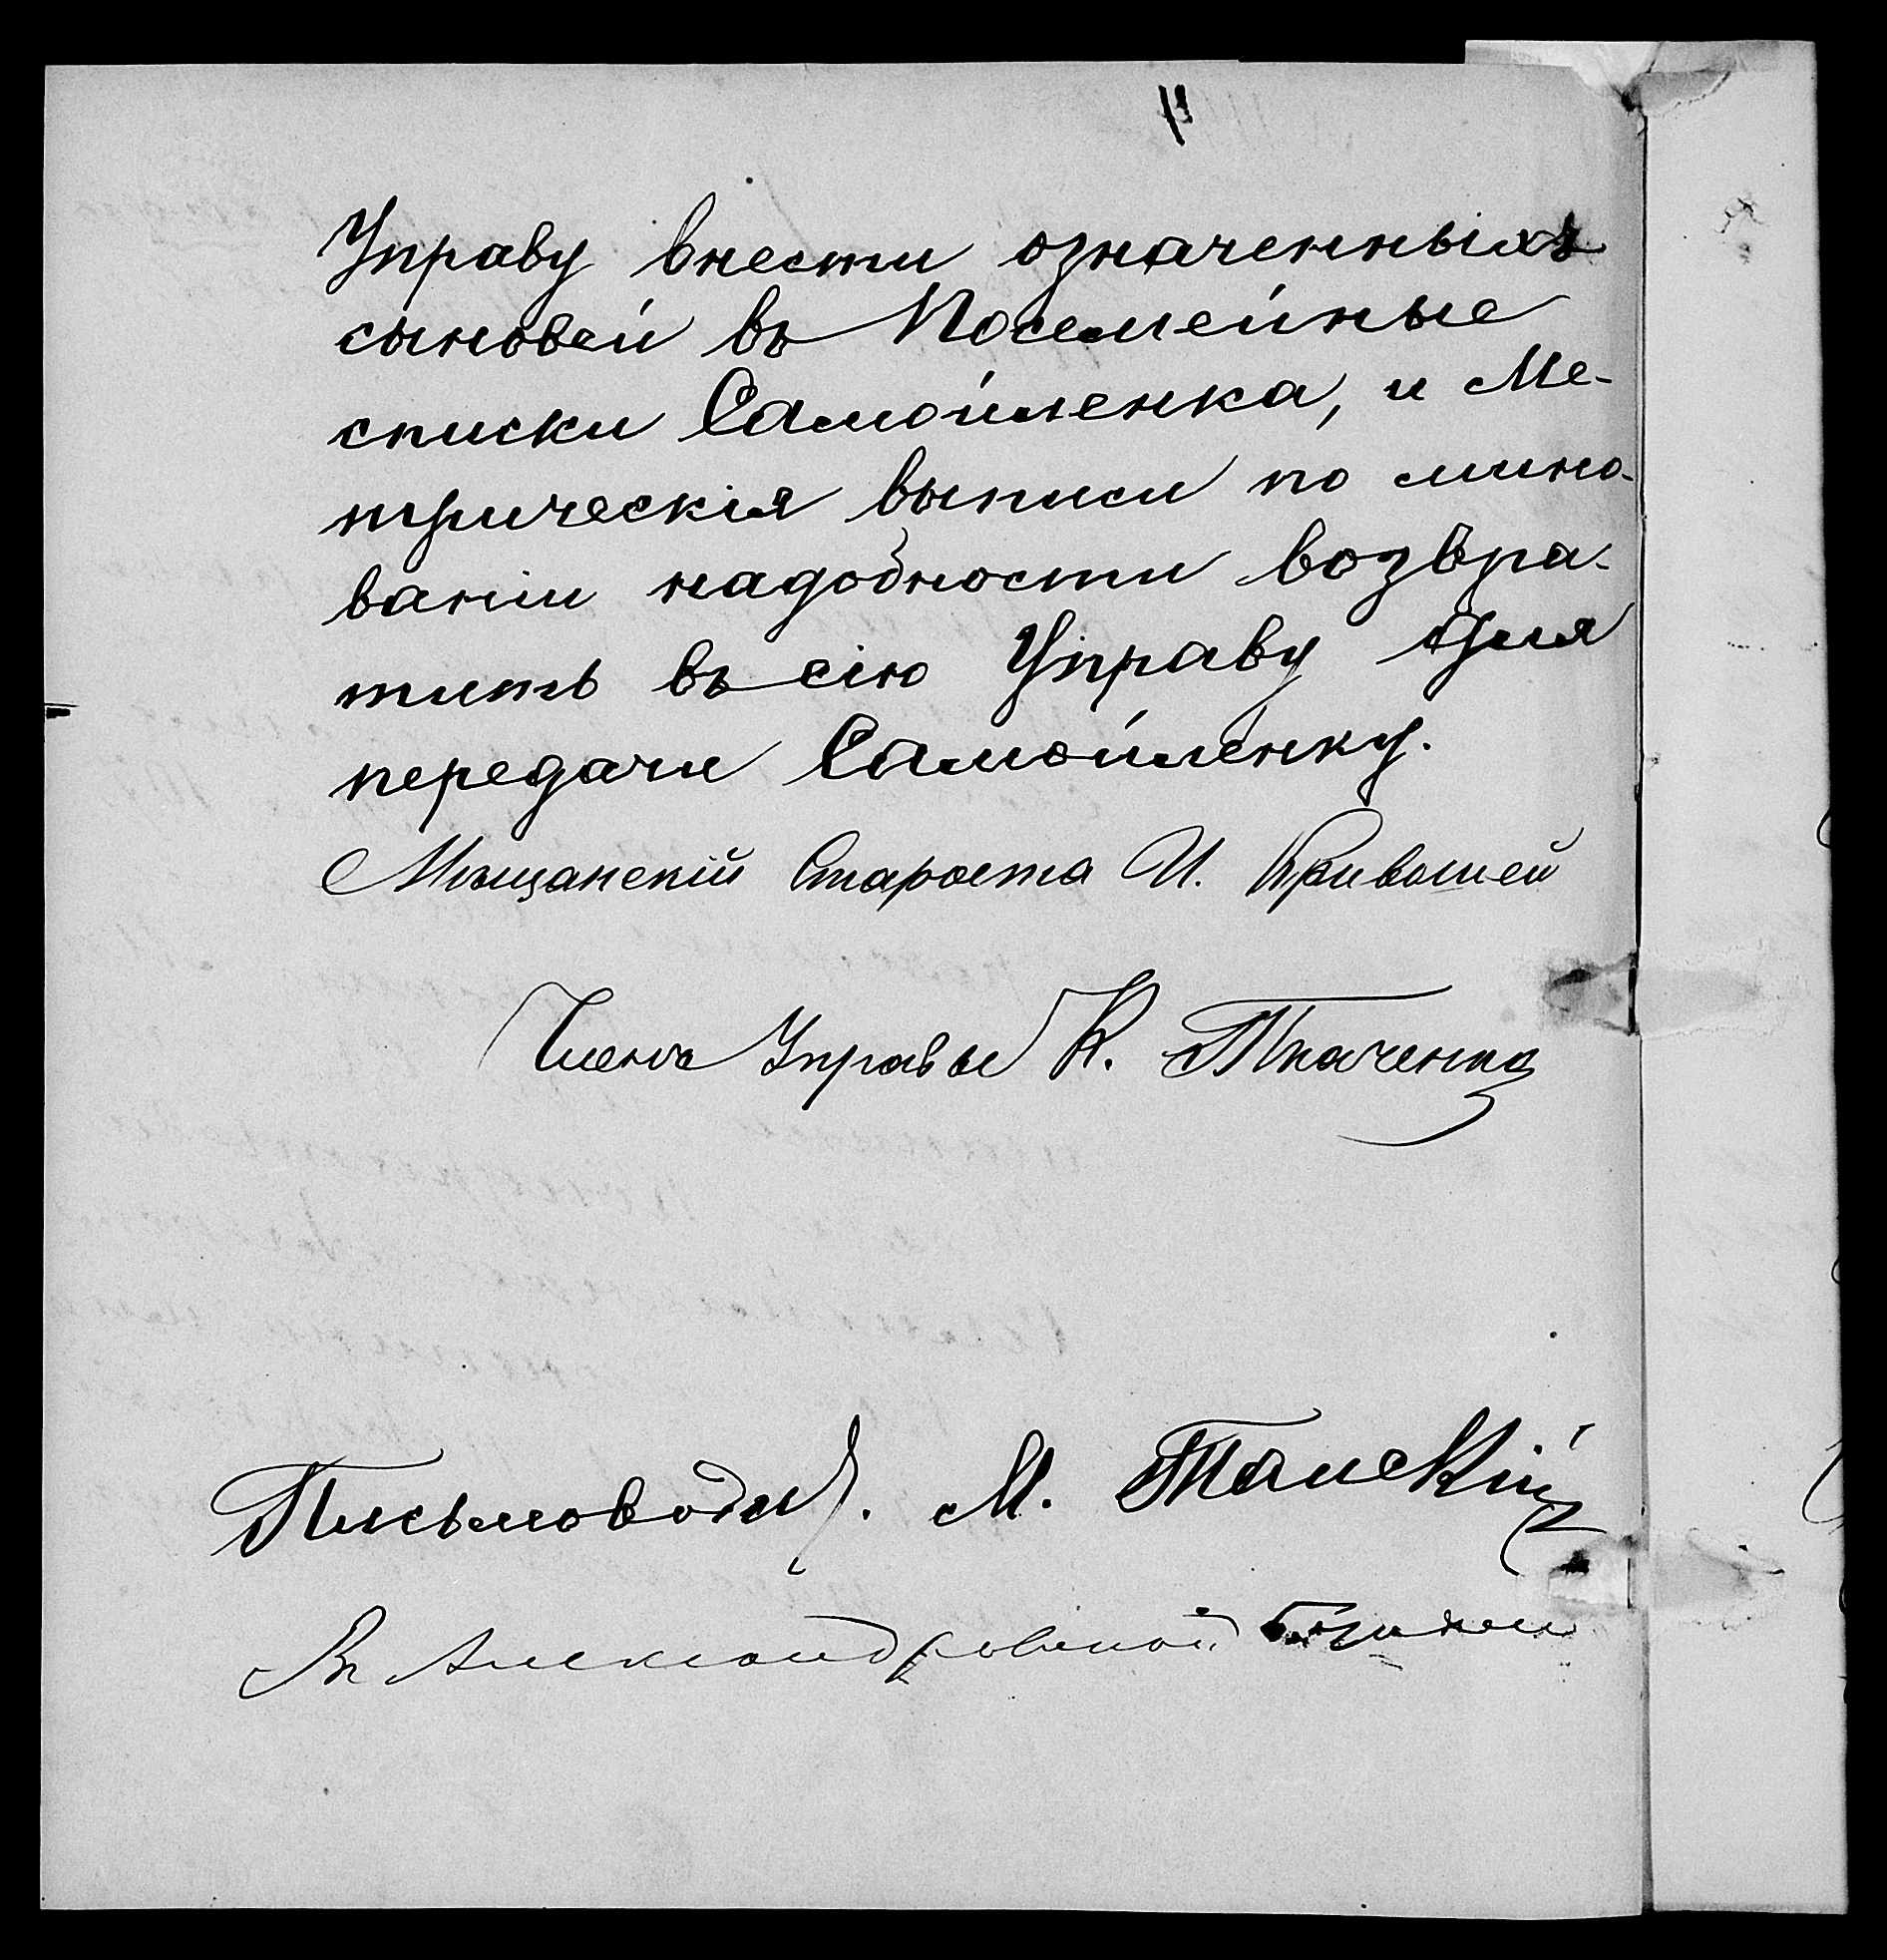 Управу внести означенныхъ
сыновей въ Посемейные
списки Самойленка, и Ме-
трическія выписи по мино-
ваніи надобности возвра-
тить въ сію Управу для
передачи Самойленку.
Мѣщанскій Староста И. Кривошей
Членъ Управы К. Ткаченко
Письмовод. М. Танскій
Въ Александровской